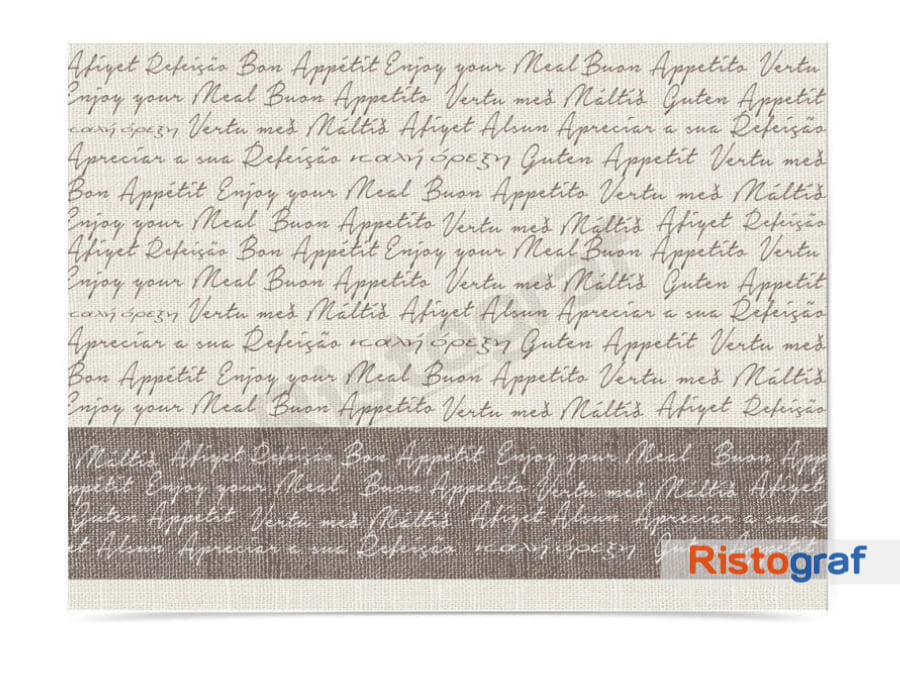 Afiyet Refeição Bon Appétit Enjoy your Meal Buon Appetito Vertu
Enjoy your Meal Buon Appetito Vertu með Máltíð Guten Appetit
καλή όρεξη Vertu með Máltíð Afiyet Alsun Apreciar a sua Refeição
Apreciar a sua Refeição καλή όρεξη Guten Appetit Vertu með
Bon Appétit Enjoy your Meal Buon Appetito Vertu með Máltíð
Enjoy your Meal Buon Appetito Vertu með Máltíð Afiyet Refeição
Afiyet Refeição Bon Appétit Enjoy your Meal Buon Appetito Vertu
Enjoy your Meal Buon Appetito Vertu með Máltíð Guten Appetit
καλή όρεξη Vertu með Máltíð Afiyet Alsun Apreciar a sua Refeição
Apreciar a sua Refeição καλή όρεξη Guten Appetit Vertu með
Bon Appétit Enjoy your Meal Buon Appetito Vertu með Máltíð
Enjoy your Meal Buon Appetito Vertu með Máltíð Afiyet Refeição
Máltíð Afiyet Refeição Bon Appétit Enjoy your Meal Buon App
ppétit Enjoy your Meal Buon Appetito Vertu með Máltíð Afiyet
Guten Appetit Vertu með Máltíð Afiyet Alsun Apreciar a sua R
et Alsun Apreciar a sua Refeição καλή όρεξη Guten Appetit
Ristograf